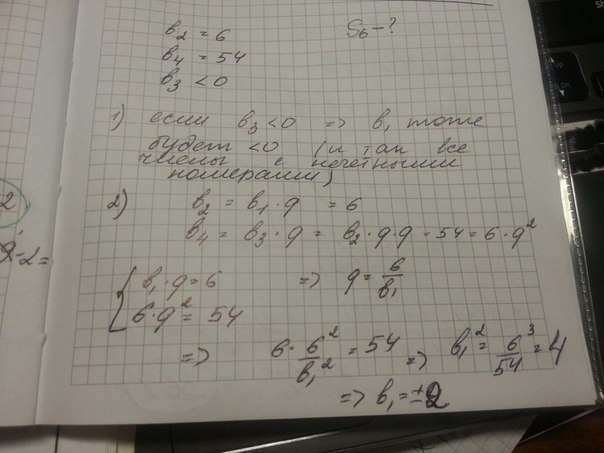 b₂ = 6 S₆ - ?
b₄ = 54
b₃ < 0
1) если b₃ < 0 => b₁ тоже
будет < 0 (и так все
числы с нечетными
номерами)
2) b₂ = b₁ · q = 6
b₄ = b₃ · q = b₂ · q · q = 54 = 6 · q²
{ b₁ · q = 6 => q = 6/b₁
6 · q² = 54
=> 6 · 6²/b₁² = 54 => b₁² = 6³/54 = 4
=> b₁ = ±2
2
q-2=